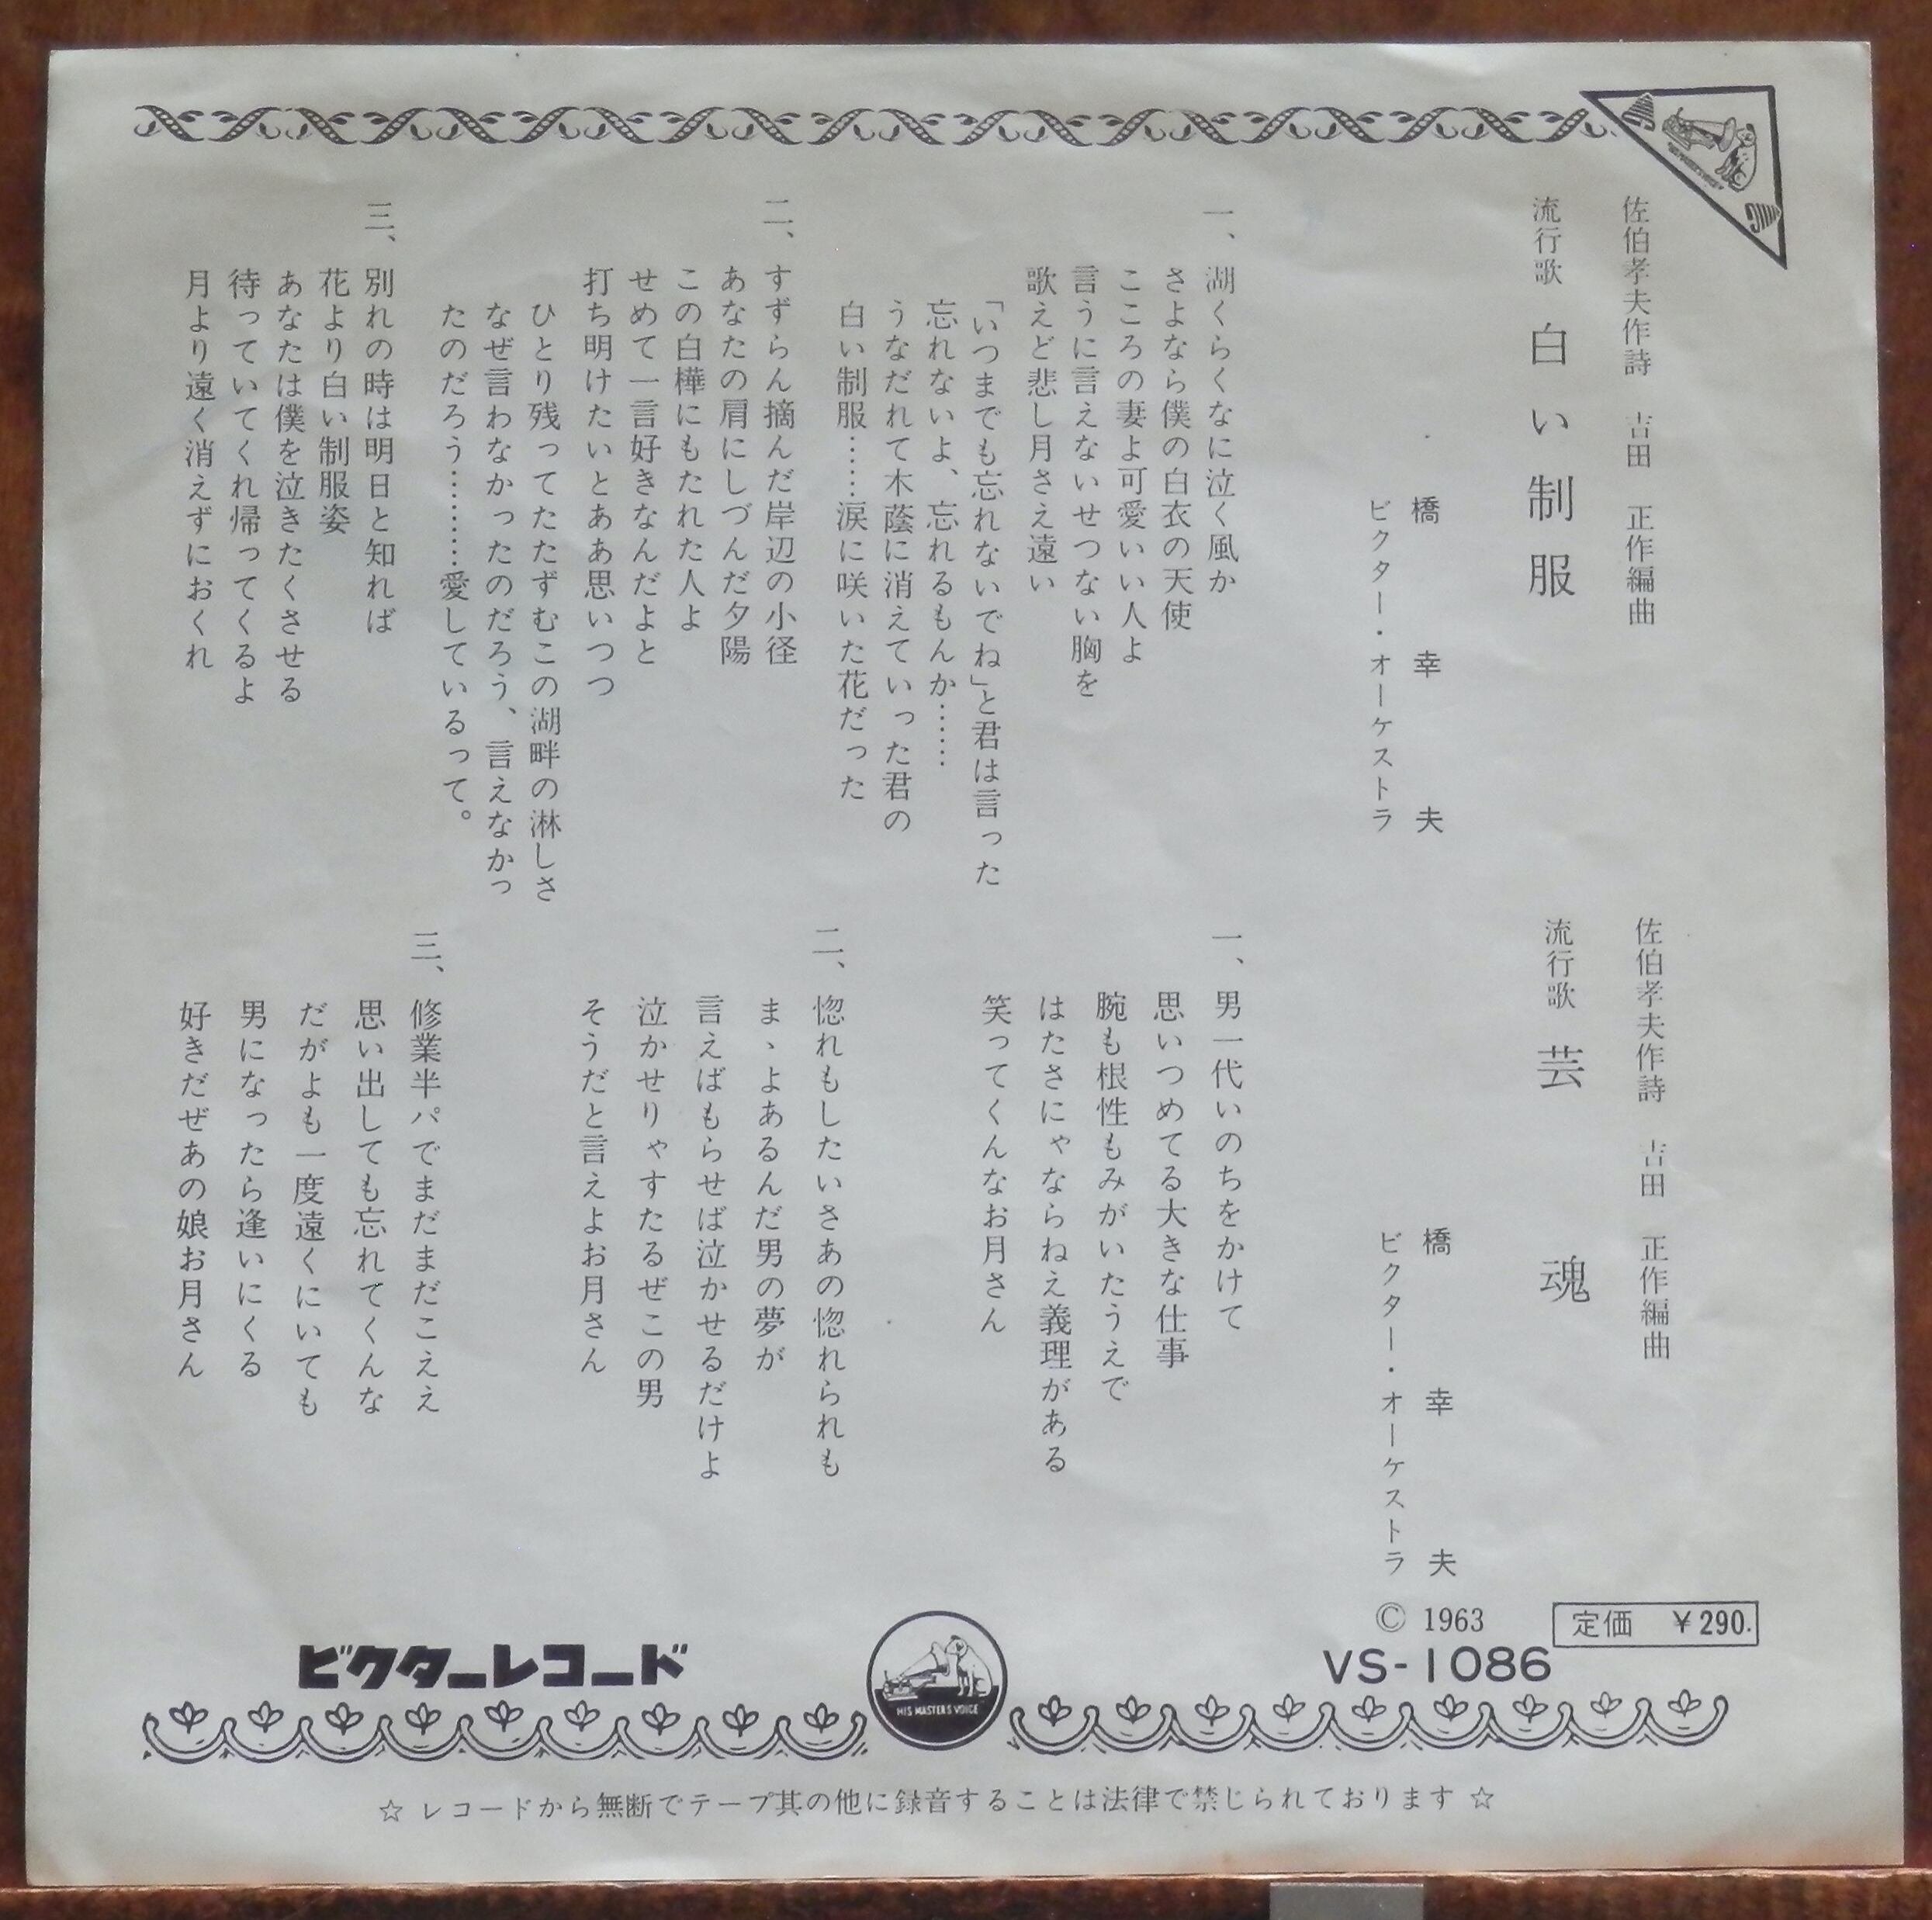 佐伯孝夫作詩 吉田 正作編曲
流行歌 白い制服
橋 幸夫
ビクター・オーケストラ
一、湖くらくなに泣く風か
さよなら僕の白衣の天使
こころの妻よ可愛いい人よ
言うに言えないせつない胸を
歌えど悲し月さえ遠い
「いつまでも忘れないでね」と君は言った
忘れないよ、忘れるもんか……
うなだれて木蔭に消えていった君の
白い制服……涙に咲いた花だった
二、すずらん摘んだ岸辺の小径
あなたの肩にしづんだ夕陽
この白樺にもたれた人よ
せめて一言好きなんだよと
打ち明けたいとああ思いつつ
ひとり残ってたたずむこの湖畔の淋しさ
なぜ言わなかったのだろう、言えなかっ
たのだろう………愛しているって。
三、別れの時は明日と知れば
花より白い制服姿
あなたは僕を泣きたくさせる
待っていてくれ帰ってくるよ
月より遠く消えずにおくれ
佐伯孝夫作詩 吉田 正作編曲
流行歌 芸魂
橋 幸夫
ビクター・オーケストラ
一、男一代いのちをかけて
思いつめてる大きな仕事
腕も根性もみがいたうえで
はたさにゃならねえ義理がある
笑ってくんなお月さん
二、惚れもしたいさあの惚れられも
まゝよあるんだ男の夢が
言えばもらせば泣かせるだけよ
泣かせりゃすたるぜこの男
そうだと言えよお月さん
三、修業半パでまだまだこええ
思い出しても忘れてくんな
だがよも一度遠くにいても
男になったら逢いにくる
好きだぜあの娘お月さん
© 1963
定価 ¥290.
VS-1086
ビクターレコード
HIS MASTER'S VOICE
☆ レコードから無断でテープ其の他に録音することは法律で禁じられております ☆